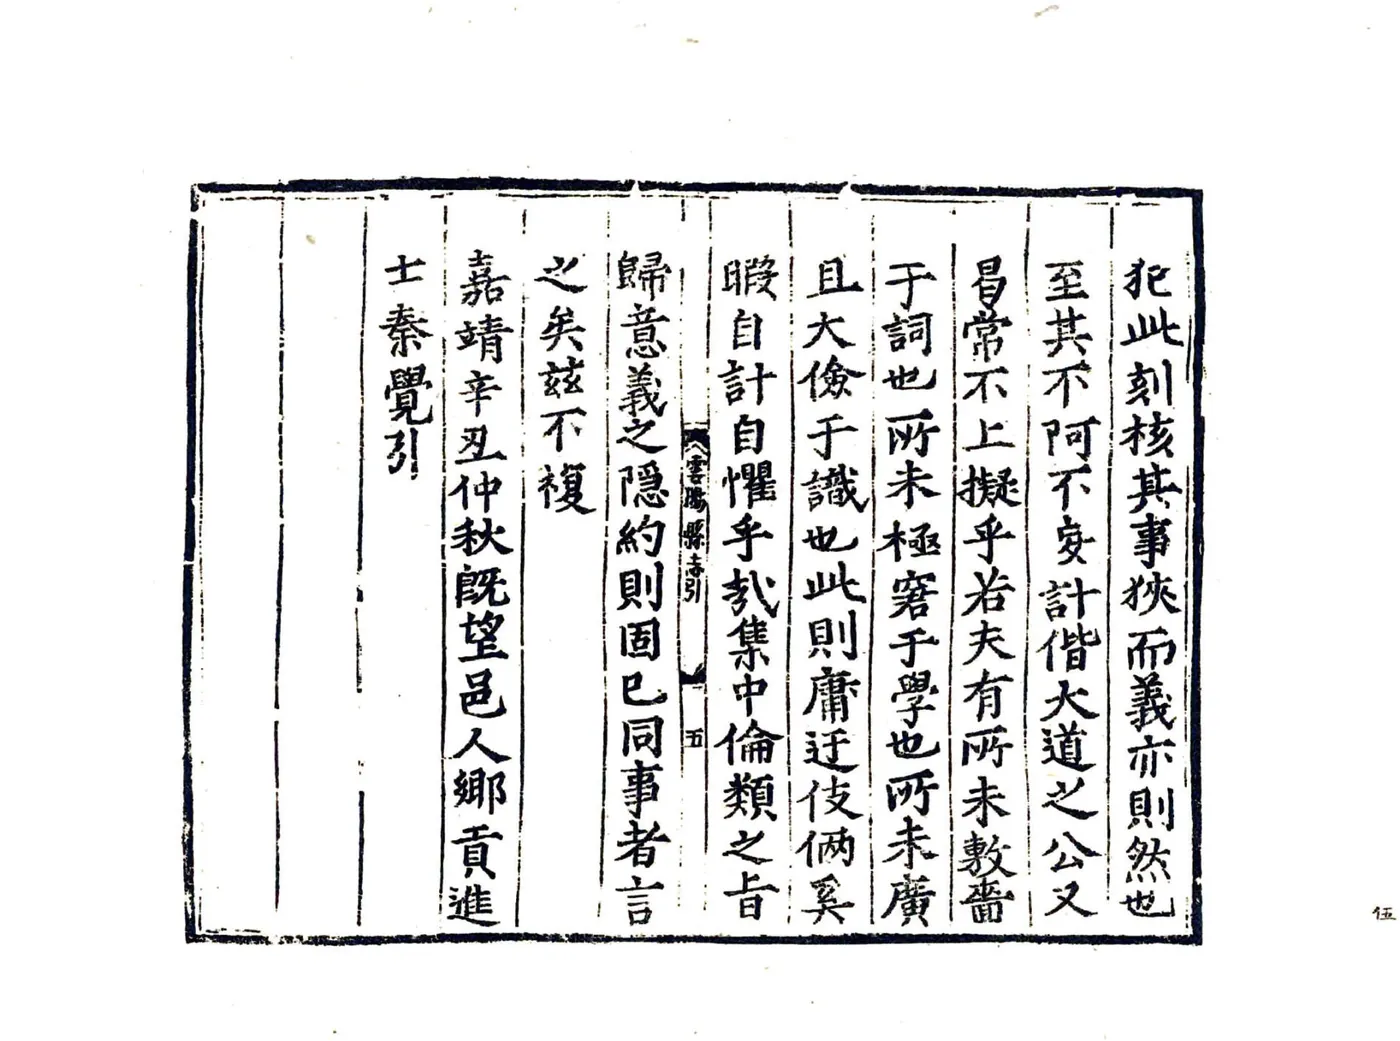 犯此刻核其事狹而義亦則然也
至其不阿不妄計偕大道之公又
曷常不上擬乎若夫有所未敷嗇
于詞也所未極窘于學也所未廣
且大儉于識也此則庸迂伎倆奚
暇自計自懼乎㢤集中倫類之旨
歸意義之隱約則固已同事者言
之矣茲不複
嘉靖辛丑仲秋旣望邑人鄉貢進
士秦覺引
雲陽縣志引
五
伍